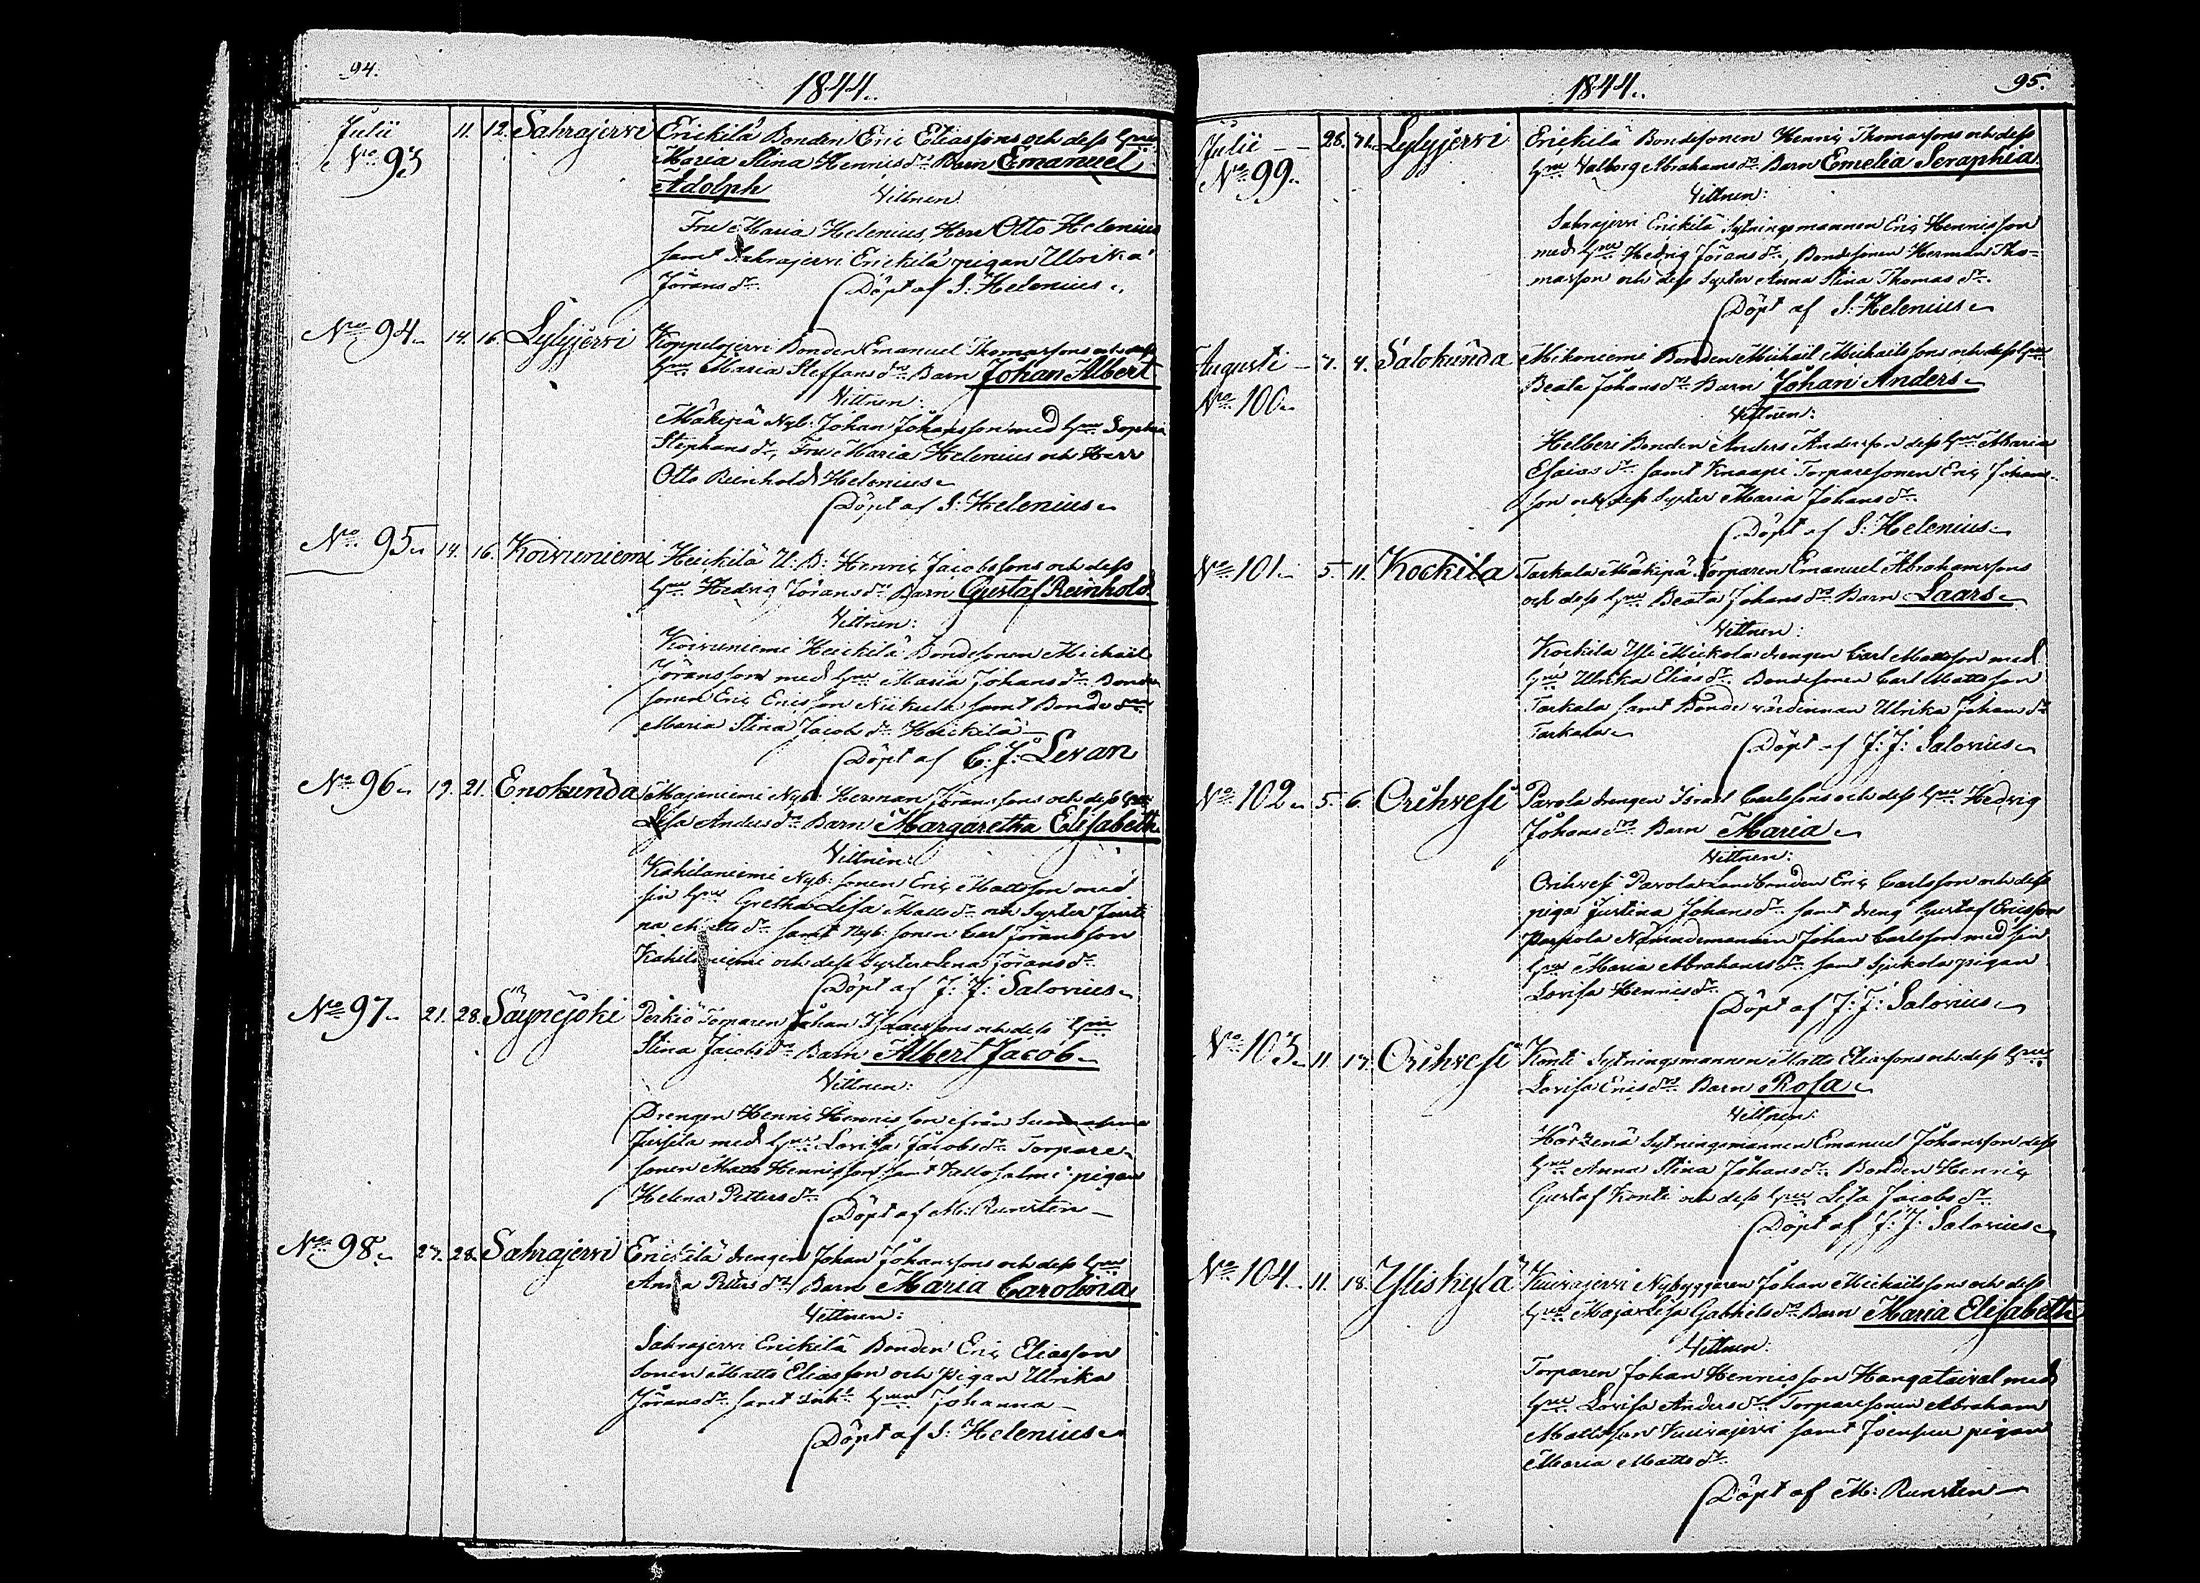 94.
1844.
Julii 11. 12. Sahrajervi Erickilä Bonden Eric Eliassons och dess Hru
No 93 Maria Stina Henricsdr Barn Emanuel
Adolph
Vittnen
Fru Maria Helenius, Herr Otto Helenius
samt Sahrajervi Erickilä pigan Ulrika
Jöransdr
Döpt af S: Helenius
No 94 14. 16. Lylyjervi Koppelojervi Bonden Emanuel Thomassons och dess
Hru Maria Steffansdr Barn Johan Albert
Vittnen:
Mäkipä Nyb: Johan Johansson med Hru Sophia
Stephansdr, Fru Maria Helenius och Herr
Otto Reinhold Helenius
Döpt af S: Helenius
No 95 14. 16. Koivuniemi Heickilä U: B: Henric Jacobssons och dess
Hru Hedvig Jöransdr Barn Gustaf Reinhold
Vittnen:
Koivuniemi Heickilä Bondesonen Michaël
Jöransson med Hru Maria Johansdr Bonde
sonen Eric Ericsson samt Bonde
Maria Stina Jacobsdr Heickilä
Döpt af C. J: Levan
No 96 19. 21. Enokunda Majaniemi Nyb: Herman Jöranssons och dess Hru
Lisa Andersdr Barn Margaretha Elisabeth
Vittnen:
Kahilaniemi Nyb: sonen Eric Mattsson med
sin Hru Gretha Lisa Mattsdr och Syster Justi
na Mattsdr samt Nyb: sonen Carl Jöransson
Kahilaniemi och dess Syster Lena Jöransdr
Döpt af J: J: Salovius
No 97 21. 28. Säynejöki Perkiö Torparen Johan Isaacssons och dess Hru
Stina Jacobsdr Barn Albert Jacob
Vittnen:
Drengen Henric Henricsson ifrån
Jussila med Hru Lovisa Jacobsdr Torpare
sonen Matts Henricsson samt pigan
Helena Pettersdr
Döpt af M: Runsten
No 98 27. 28. Sahrajervi Erickilä drengen Johan Johanssons och dess Hru
Anna Pettersdr Barn Maria Carolina
Vittnen:
Sahrajervi Erickilä Bonden Eric Eliasson
Sonen Matts Eliasson och Pigan Ulrika
Jöransdr samt Hru Johanna
Döpt af S: Helenius
1844.
95.
Julii 28. Lylyjervi Erickilä Bondesonen Henric Thomassons och dess
No 99 Hru Valborg Abrahamsdr Barn Emelia Seraphia
Vittnen:
Sahrajervi Erickilä Sytningsmannen Eric Henricsson
med Hru Hedvig Jöransdr, Bondesonen Herman Tho-
masson och dess Syster Anna Stina Thomasdr
Döpt af S: Helenius
Augusti 7. Salokunda Mikoniemi Bonden Michaël Michaëlssons och dess Hru
No 100 Beata Johansdr Barn Johan Anders
Vittnen:
Helberi Bonden Anders Andersson dess Hru Maria
Esaiasdr samt Knaapi Torparesonen Eric Johans-
son och dess Syster Maria Johansdr
Döpt af S: Helenius
No 101 5. 11. Kockila Taskala Mäkipä Torparen Emanuel Abrahamssons
och dess Hru Beata Johansdr Barn Laars
Vittnen:
Kockila Yli Mickola drengen Carl Mattsson med
Hru Ulrika Eliasdr Bondesonen Carl Mattsson
Taskala samt Bonde värdinnan Ulrika Johansdr
Taskala
Döpt af J: J: Salovius
No 102 5. 6. Orihvesi Pavola drengen Israel Carlssons och dess Hru Hedvig
Johansdr Barn Maria
Vittnen:
Orihvesi Pavola Landbonden Eric Carlsson och dess
piga Justina Johansdr samt dreng Gustaf Ericsson
Nämndemannen Johan Carlsson med sin
Hru Maria Abrahamsdr samt pigan
Lovisa Henricsdr
Döpt af J: J: Salovius
No 103 11. 17. Orihvesi Konti Sytningsmannen Matts Eliassons och dess Hru
Lovisa Ericsdr Barn Rosa
Vittnen:
Sytningsmannen Emanuel Johansson dess
Hru Anna Stina Johansdr Bonden Henric
Gustaf Konti och dess Hru Lisa Jacobsdr
Döpt af J: J: Salovius
No 104 11. 18. Yliskylä Kuivajervi Nybyggaren Johan Michaëlssons och dess
Hru Maja Lisa Gabrielsdr Barn Maria Elisabeth
Vittnen
Torparen Johan Henricsson Kangataival med
Hru Lovisa Andersdr Torparesonen Abraham
Mattsson Kuivajervi samt Joensuu pigan
Maria Mattsdr
Döpt af M: Runsten